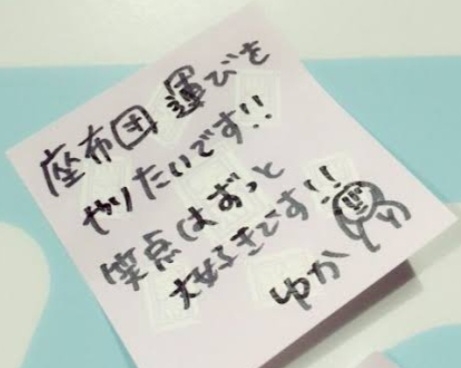 座布団運びを
やりたいです!!
笑点はずっと
大好きです!!
ゆか